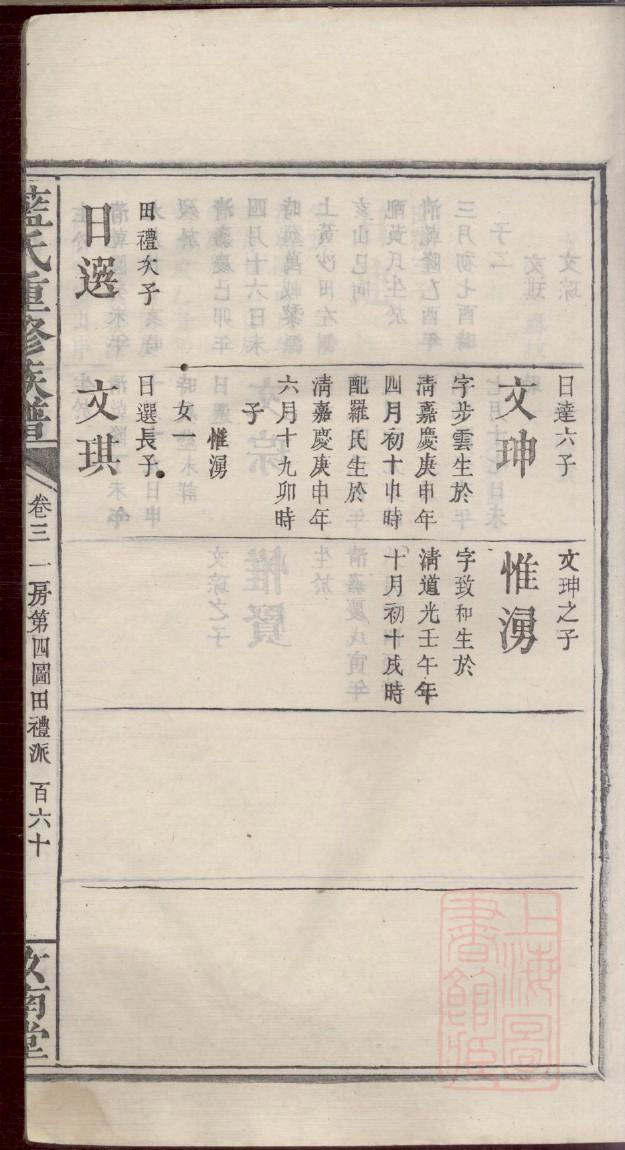 日達六子
文珅
字步雲生於
清嘉慶庚申年
四月初十申時
配羅氏生於
清嘉慶庚申年
六月十九卯時
子
惟湧
女一
文珅之子
惟湧
字致和生於
清道光壬午年
十月初十戌時
田禮次子
日選
日選長子
文琪
藍氏重修族譜
卷三
一房第四圖田禮派
百六十
汝南堂
上海圖
書館藏